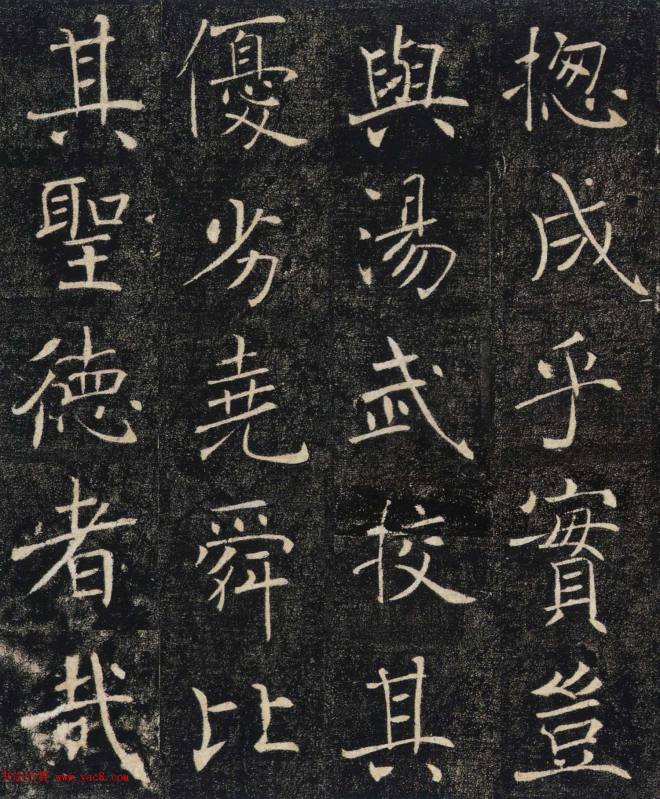 揔成乎實豈
與湯武挍其
優劣堯舜比
其聖德者哉
www.yac8.com